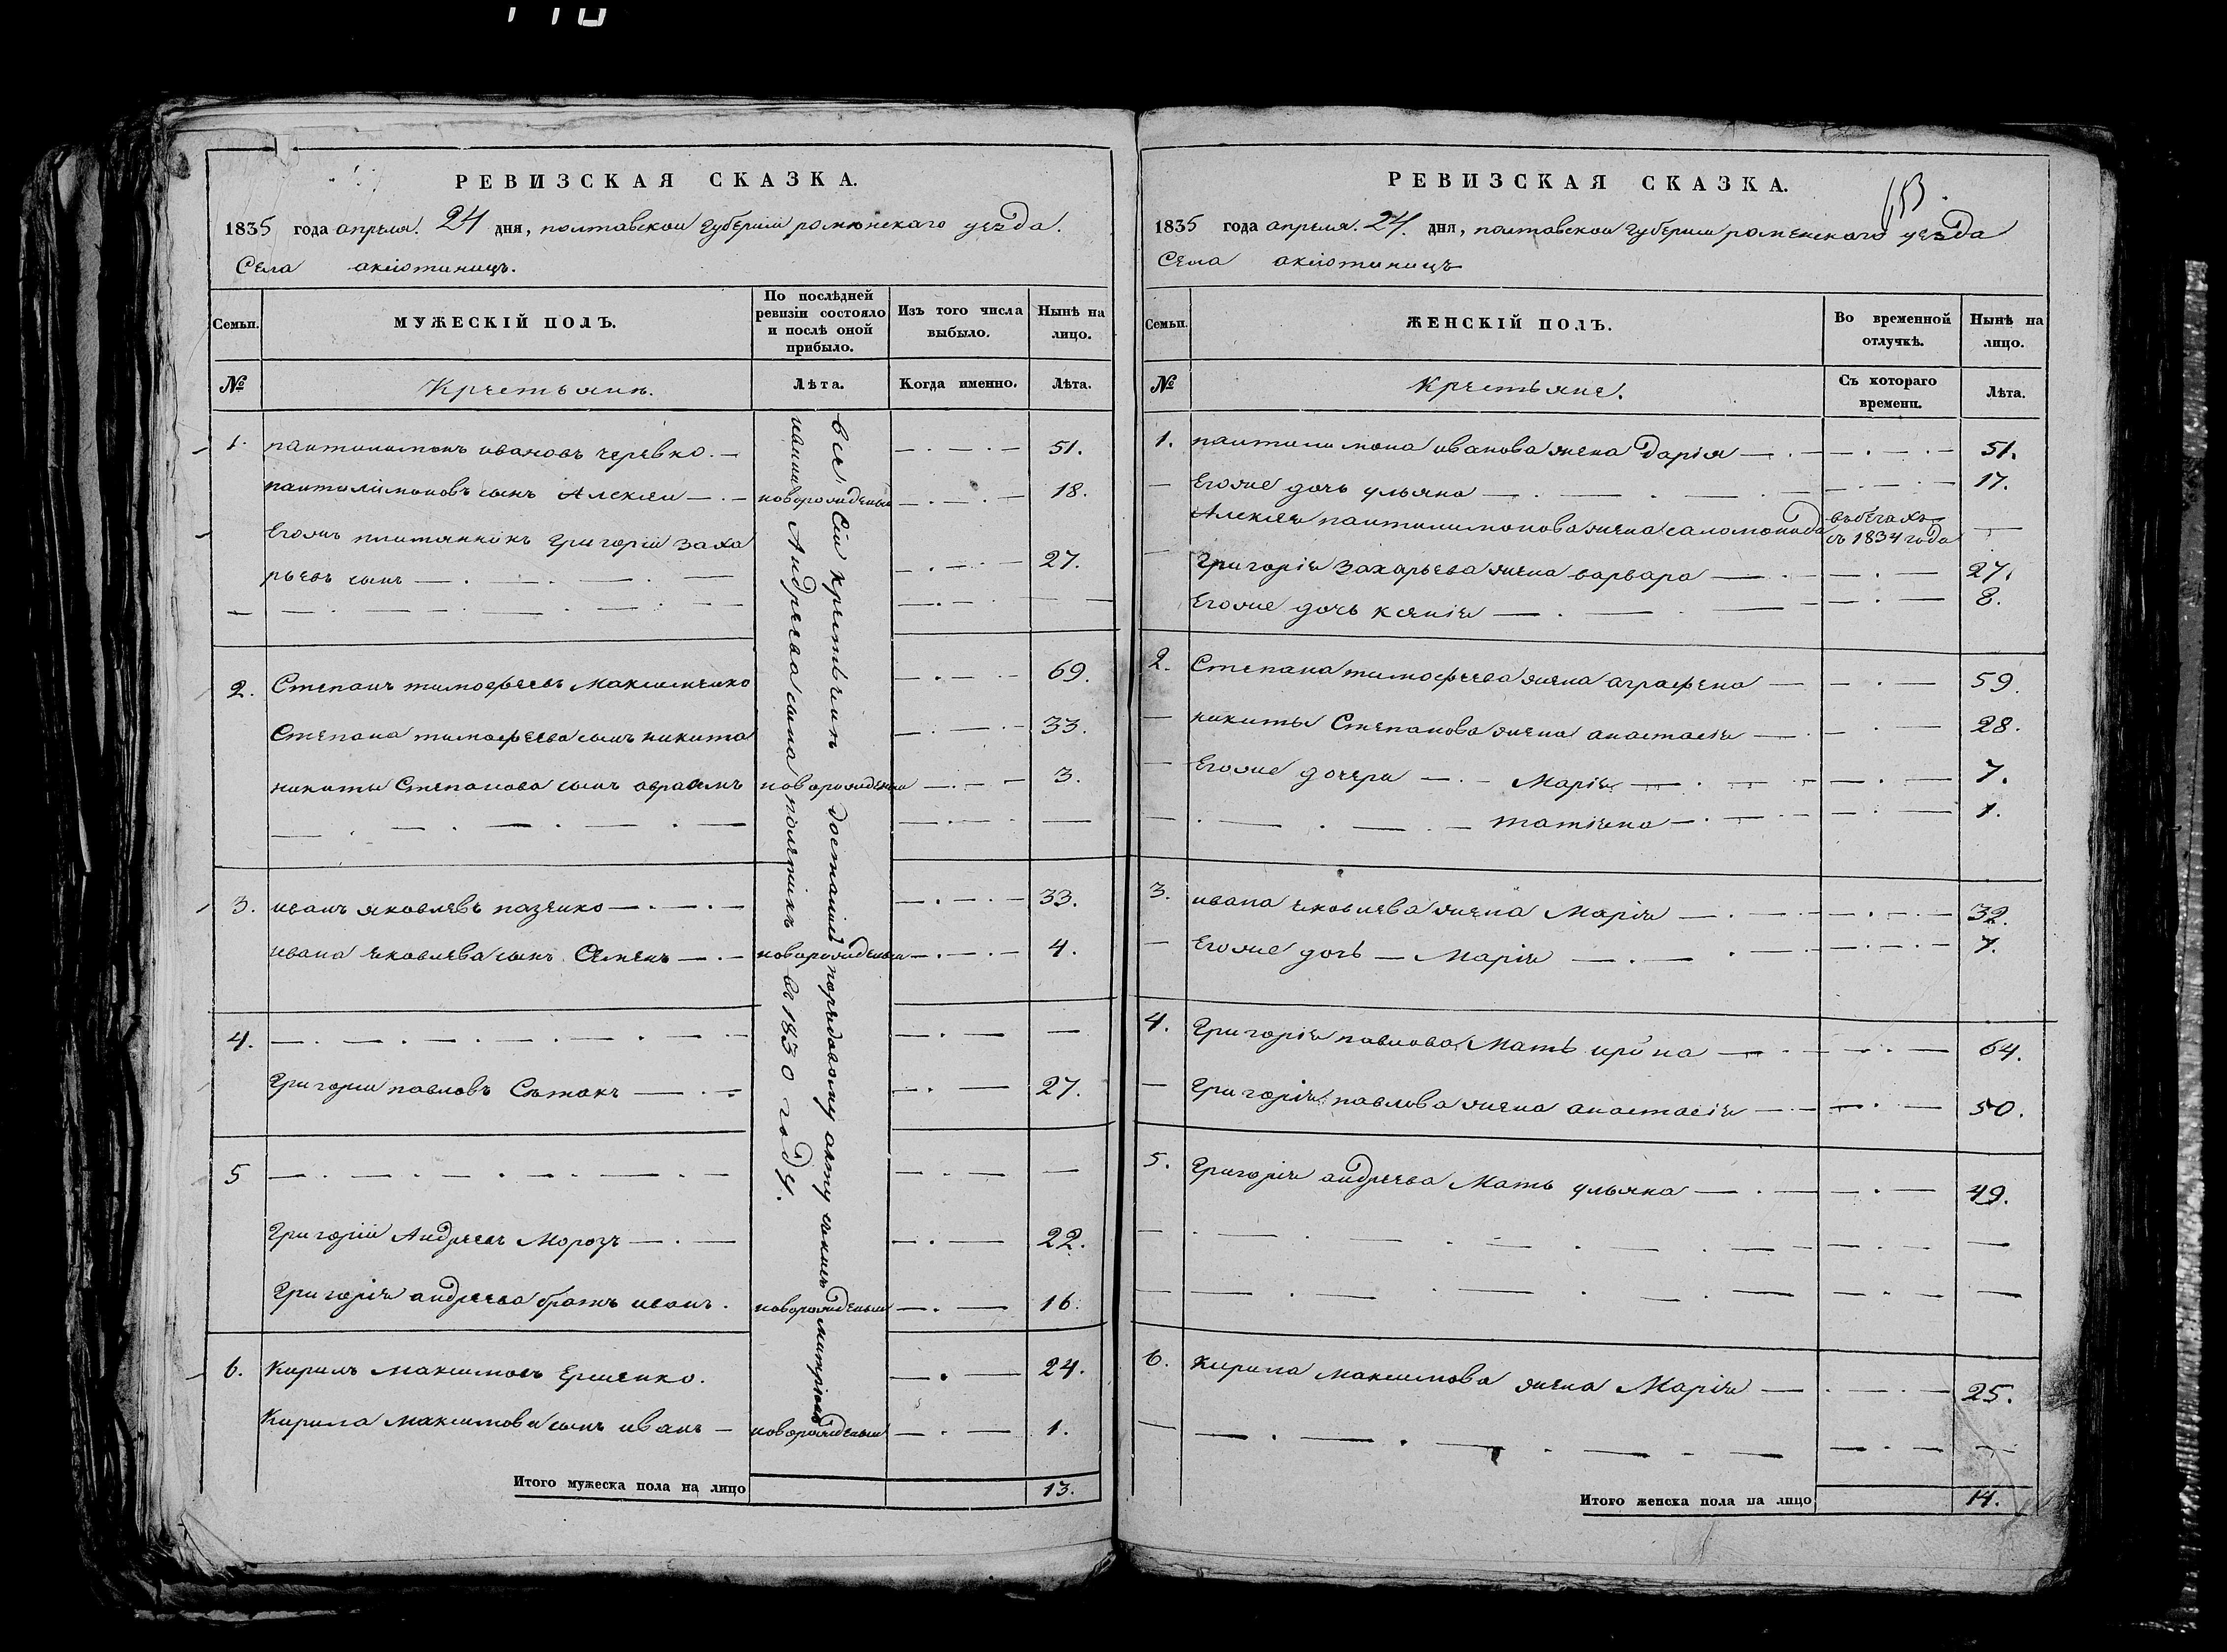 РЕВИЗСКАЯ СКАЗКА.
1835 года апреля. 24 дня, полтавскои губернии роменскаго уезда.
Села аксютиницъ.
Семьи. МУЖЕСКІЙ ПОЛЪ. По послѣдней ревизіи состояло и послѣ оной прибыло. Изъ того числа выбыло. Нынѣ на лицо.
№ Крестьянѣ. Лѣта. Когда именно. Лѣта.
1. пантилимонъ ивановъ черевко. 51.
пантилимоновъ сынъ Алексеи новорожденыи 18.
Егожъ племянникъ григорій Заха
рьевъ сынъ 27.
2. Степанъ тимофеевъ Максименко 69.
Степана тимофеева сынъ никита 33.
никиты Степанова сынъ авраамъ новорожденыи 3.
3. иванъ яковлевъ пазенко 33.
ивана яковлева сынъ Семенъ новорожденыи 4.
4.
Григории павловъ Сѣтакъ 27.
5
Григоріи Андреевъ Морозъ 22.
Григорія андреева братъ иванъ. новорожденыи 16.
6. Кирилъ максимовъ Ершенко. 24.
Кирила максимова сынъ иванъ новорожденыи 1.
Итого мужеска пола на лицо 13.
все Сіи крестьяне достались порядовому акту
Андреева сына полетикъ въ 1830 году.
РЕВИЗСКАЯ СКАЗКА.
1835 года апреля. 24. дня, полтавскои губернии роменскаго уезда
Села аксютиницъ
Семьи. ЖЕНСКІЙ ПОЛЪ. Во временной отлучкѣ. Нынѣ на лицо.
№ Крестьяне. Съ котораго времени. Лѣта.
1. пантилимона иванова жена Дарія 51.
Егоже дочь ульяна 17.
Алексея пантилимонова жена саломонида въ бегахъ съ 1834 года
Григорія Захарьева жена варвара 27.
Егоже дочь ксенія 8.
2. Степана тимофеева жена аграфена 59.
никиты Степанова жена анастасія 28.
Егоже дочери Марія 7.
татіяна 1.
3. ивана яковлева жена Марія 32.
Егоже дочь Марія 7.
4. Григорія павлова Мать ирина 64.
Григорія павлова жена анастасія 50.
5. Григорія андреева Мать ульяна 49.
6. Кирила максимова жена Марія 25.
Итого женска пола на лицо 14.